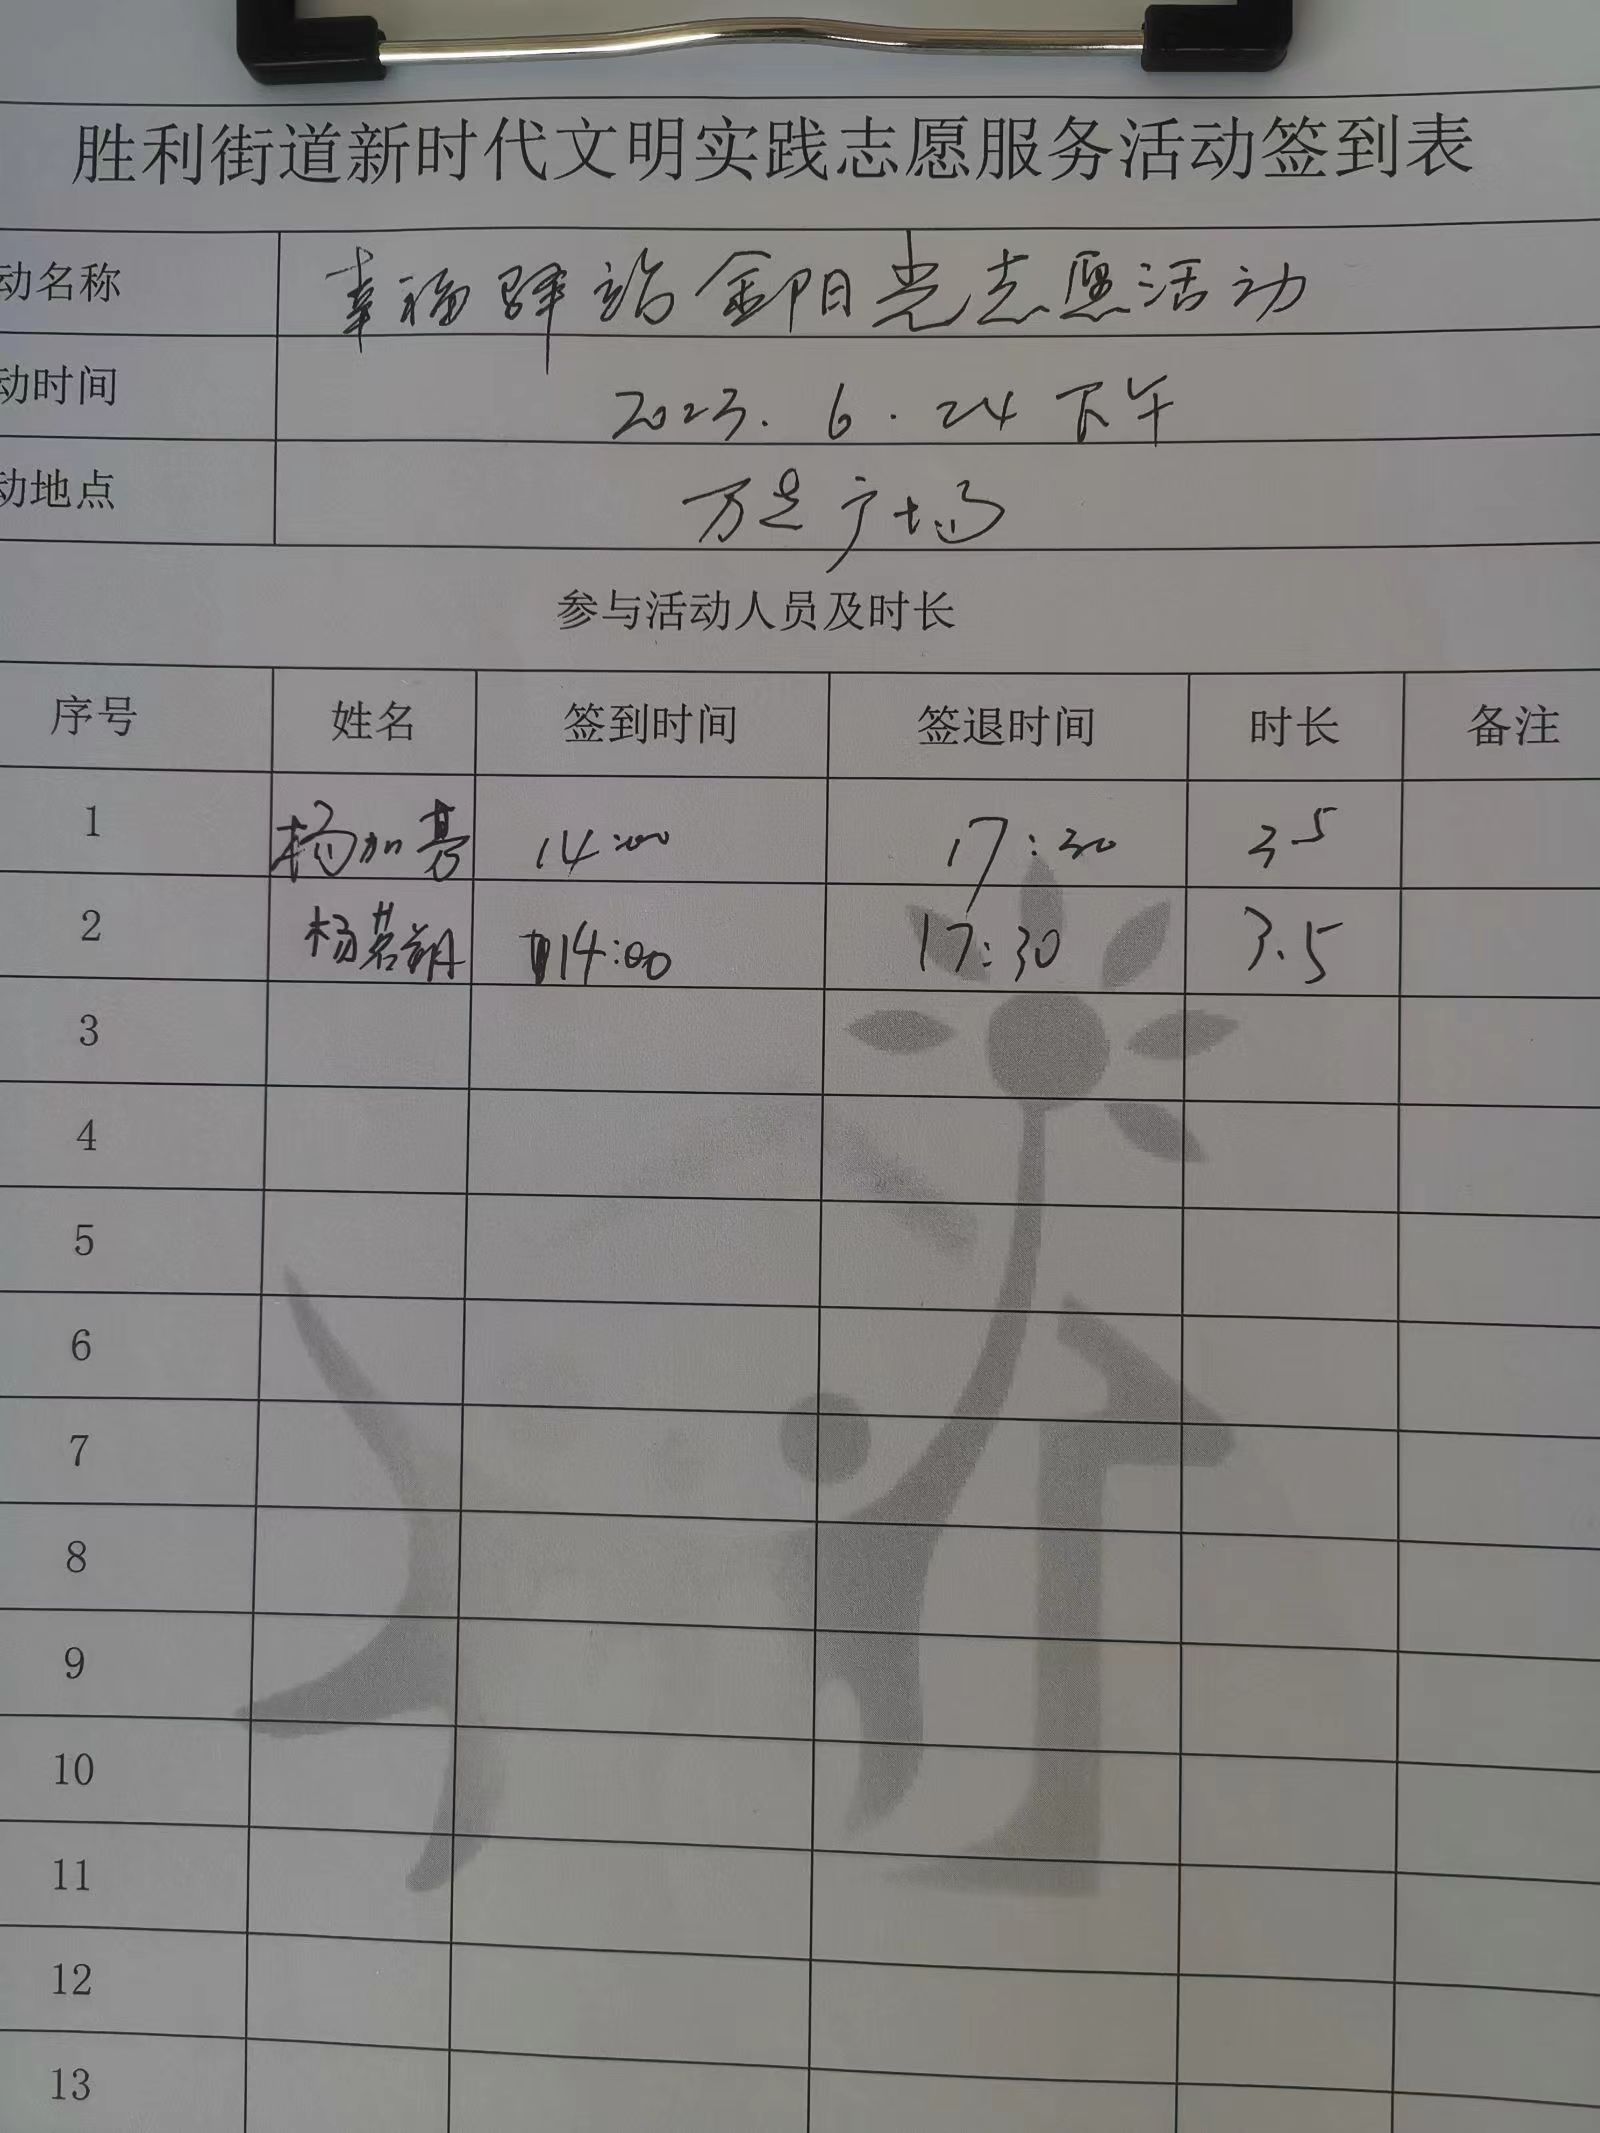 胜利街道新时代文明实践志愿服务活动签到表
动名称 幸福驿站金阳光志愿活动
动时间 2023.6.24 下午
动地点 万达广场
参与活动人员及时长
序号 姓名 签到时间 签退时间 时长 备注
1 杨加 14:00 17:30 35
2 杨茗朔 14:00 17:30 3.5
3
4
5
6
7
8
9
10
11
12
13